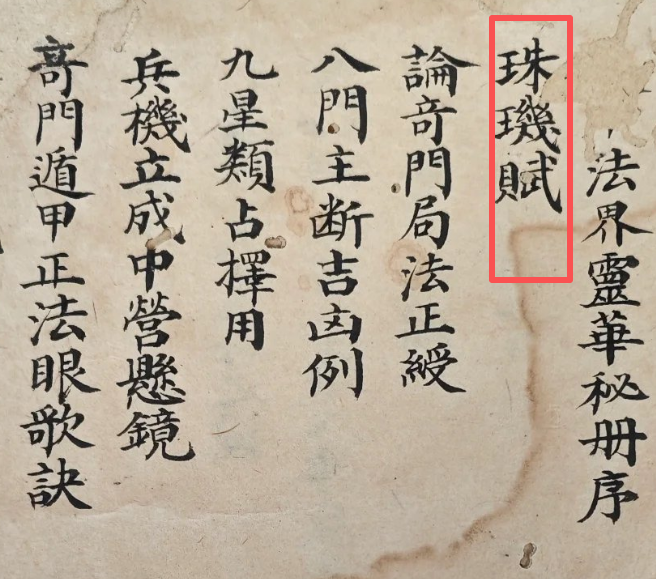 法界靈華秘册序
珠璣賦
論竒門局法正綬
八門主断吉凶例
九星類占擇用
兵機立成中營懸鏡
竒門遁甲正法眼歌訣